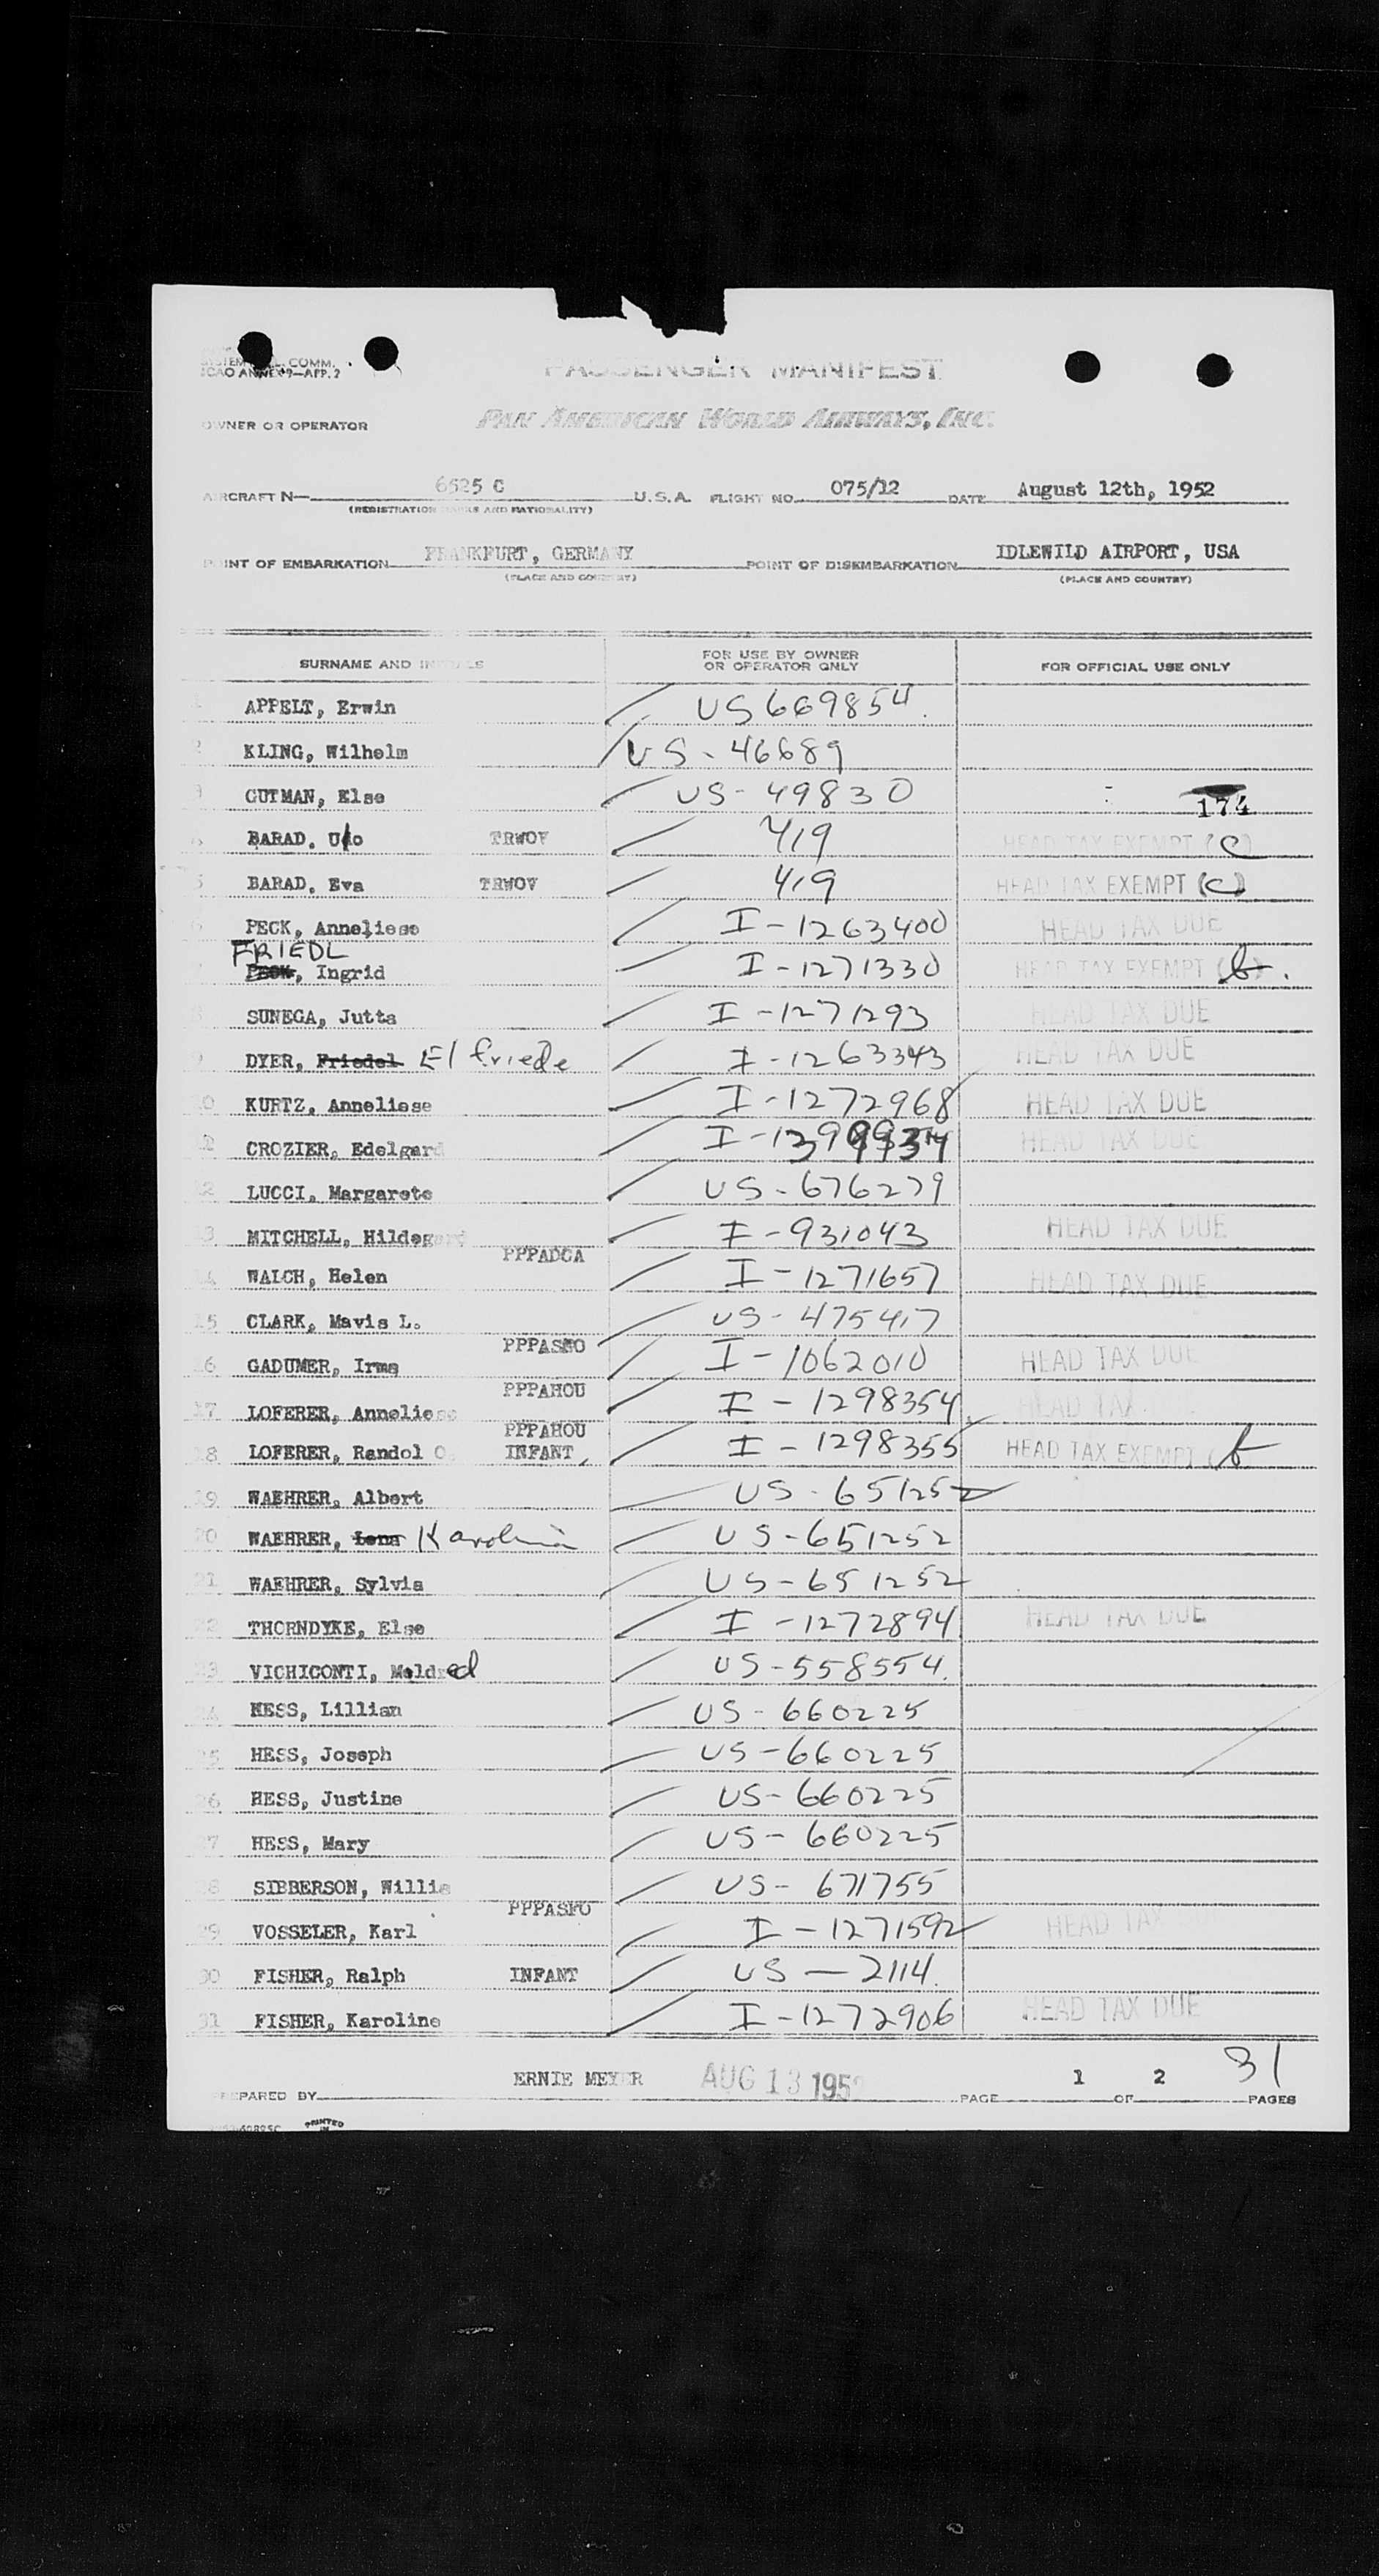 SYSTEM COMM.
ICAO ANNEX 9—APP. 2
PASSENGER MANIFEST
OWNER OR OPERATOR PAN AMERICAN WORLD AIRWAYS, INC.
AIRCRAFT N— 6525 C U.S.A. FLIGHT NO. 075/12 DATE August 12th, 1952
(REGISTRATION MARKS AND NATIONALITY)
POINT OF EMBARKATION FRANKFURT, GERMANY POINT OF DISEMBARKATION IDLEWILD AIRPORT, USA
(PLACE AND COUNTRY) (PLACE AND COUNTRY)
SURNAME AND INITIALS FOR USE BY OWNER OR OPERATOR ONLY FOR OFFICIAL USE ONLY
APPELT, Erwin US 669854.
2 KLING, Wilhelm US-46689
3 GUTMAN, Else US-49830 174
BARAD, Udo TRWOV 419 HEAD TAX EXEMPT (C)
5 BARAD, Eva TRWOV 419 HEAD TAX EXEMPT (C)
6 PECK, Anneliese I-1263400 HEAD TAX DUE
FRIEDL
7 PECK, Ingrid I-1271330 HEAD TAX EXEMPT (b).
8 SUNEGA, Jutta I-1271293 HEAD TAX DUE
9 DYER, Friedel Elfriede I-1263343 HEAD TAX DUE
10 KURTZ, Anneliese I-1272968 HEAD TAX DUE
CROZIER, Edelgard HEAD TAX DUE
12 LUCCI, Margarete US-676279
13 MITCHELL, Hildegard I-931043 HEAD TAX DUE
PPPADCA
14 WALCH, Helen I-1271657 HEAD TAX DUE
15 CLARK, Mavis L. US-475417
PPPASMO
16 GADUMER, Irma I-1062010 HEAD TAX DUE
PPPAHOU
17 LOFERER, Anneliese I-1298354 HEAD TAX DUE
PPPAHOU
18 LOFERER, Randol O. INFANT I-1298355 HEAD TAX EXEMPT (b
19 WAEHRER, Albert US-651252
20 WAEHRER, Lena Karolina US-651252
21 WAEHRER, Sylvia US-651252
22 THORNDYKE, Else I-1272894 HEAD TAX DUE
23 VICHICONTI, Meldred US-558554.
24 HESS, Lillian US-660225
25 HESS, Joseph US-660225
26 HESS, Justine US-660225
27 HESS, Mary US-660225
28 SIBBERSON, Willia US-671755
PPPASFO
29 VOSSELER, Karl I-1271592 HEAD TAX
30 FISHER, Ralph INFANT US-2114.
31 FISHER, Karoline I-1272906 HEAD TAX DUE
PREPARED BY ERNIE MEYER AUG 13 1952 PAGE 1 OF 2 PAGES 31
PRINTED
IN